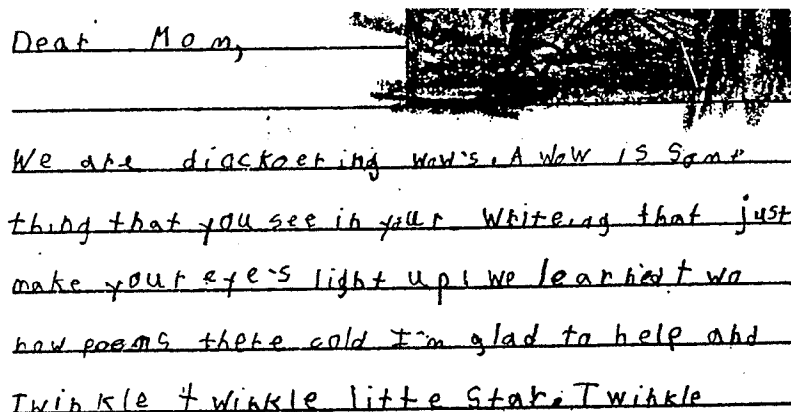 Dear Mom,
We are diackoering wow's. A wow is Some
thing that you see in your writeing that just
make your eye's light up! We learned two
now poems there cold I'm glad to help and
Twinkle twinkle litte Star. Twinkle